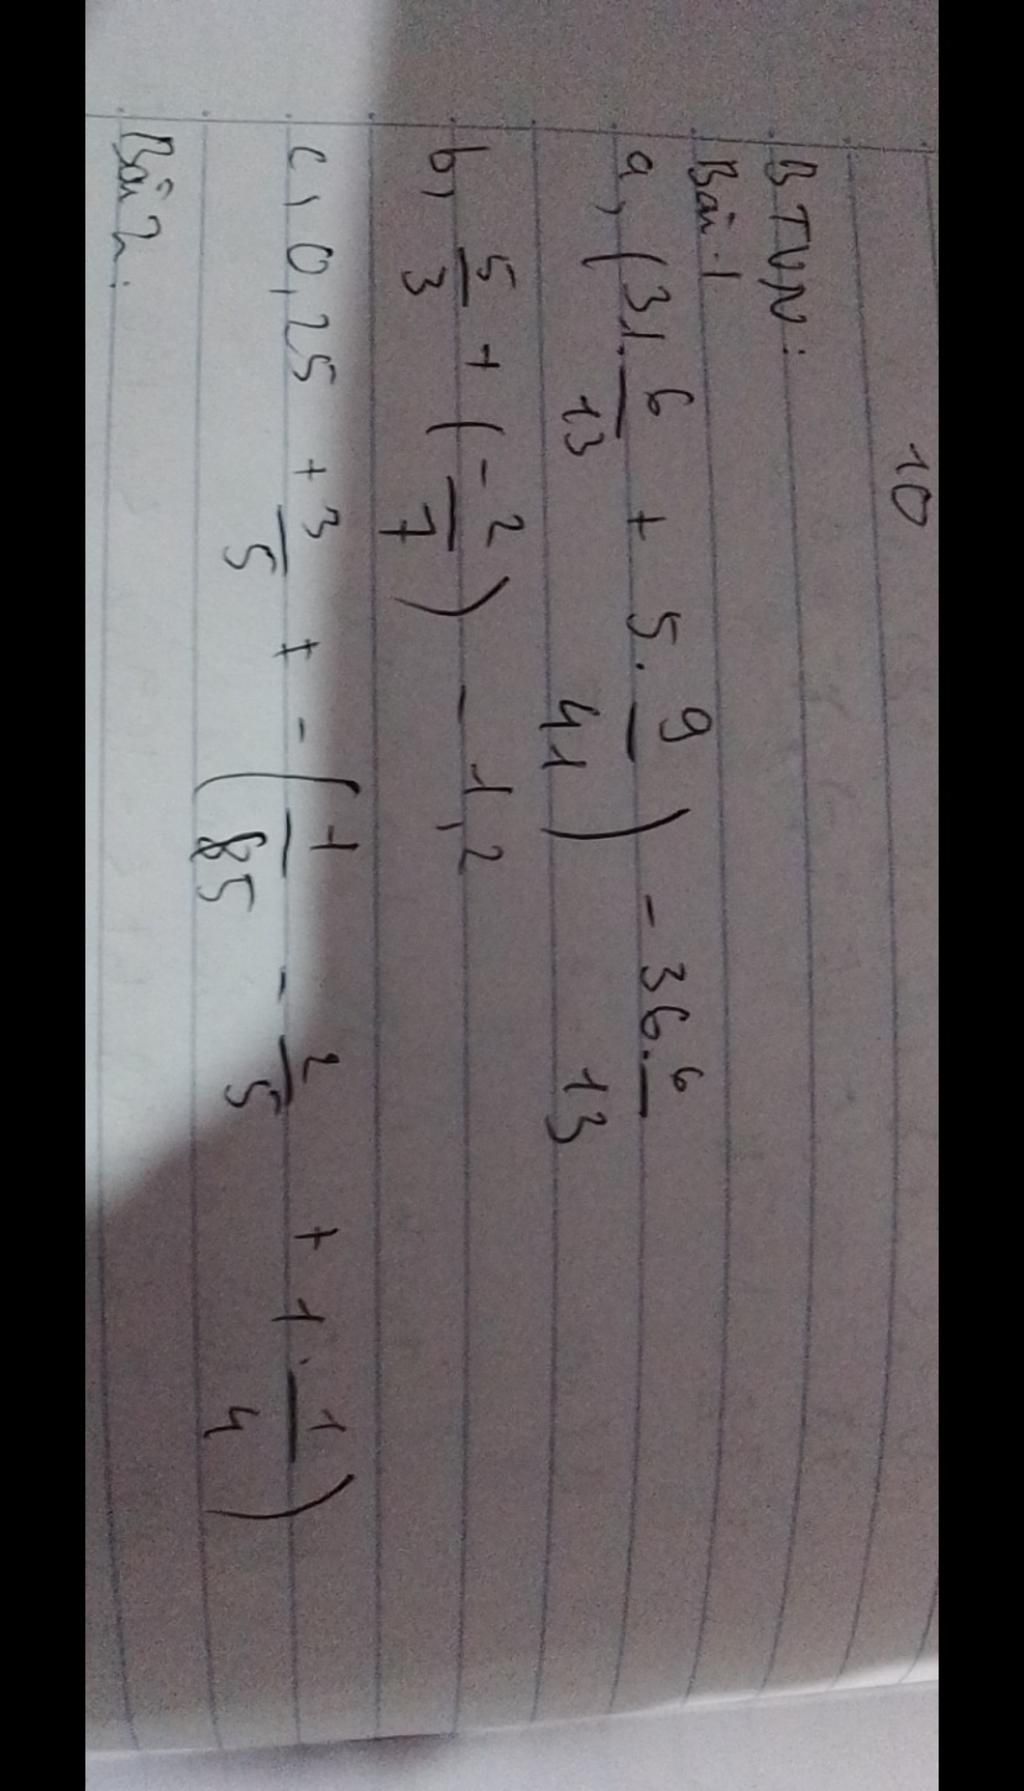 10
BTVN:
Bài 1
a, (31. 6/13 + 5. 9/41) - 36. 6/13
b, 5/3 + (-2/7) - 1,2
c, 0,25 + 3/5 + - (1/85 - 2/5 + 1. 1/4)
Bài 2: